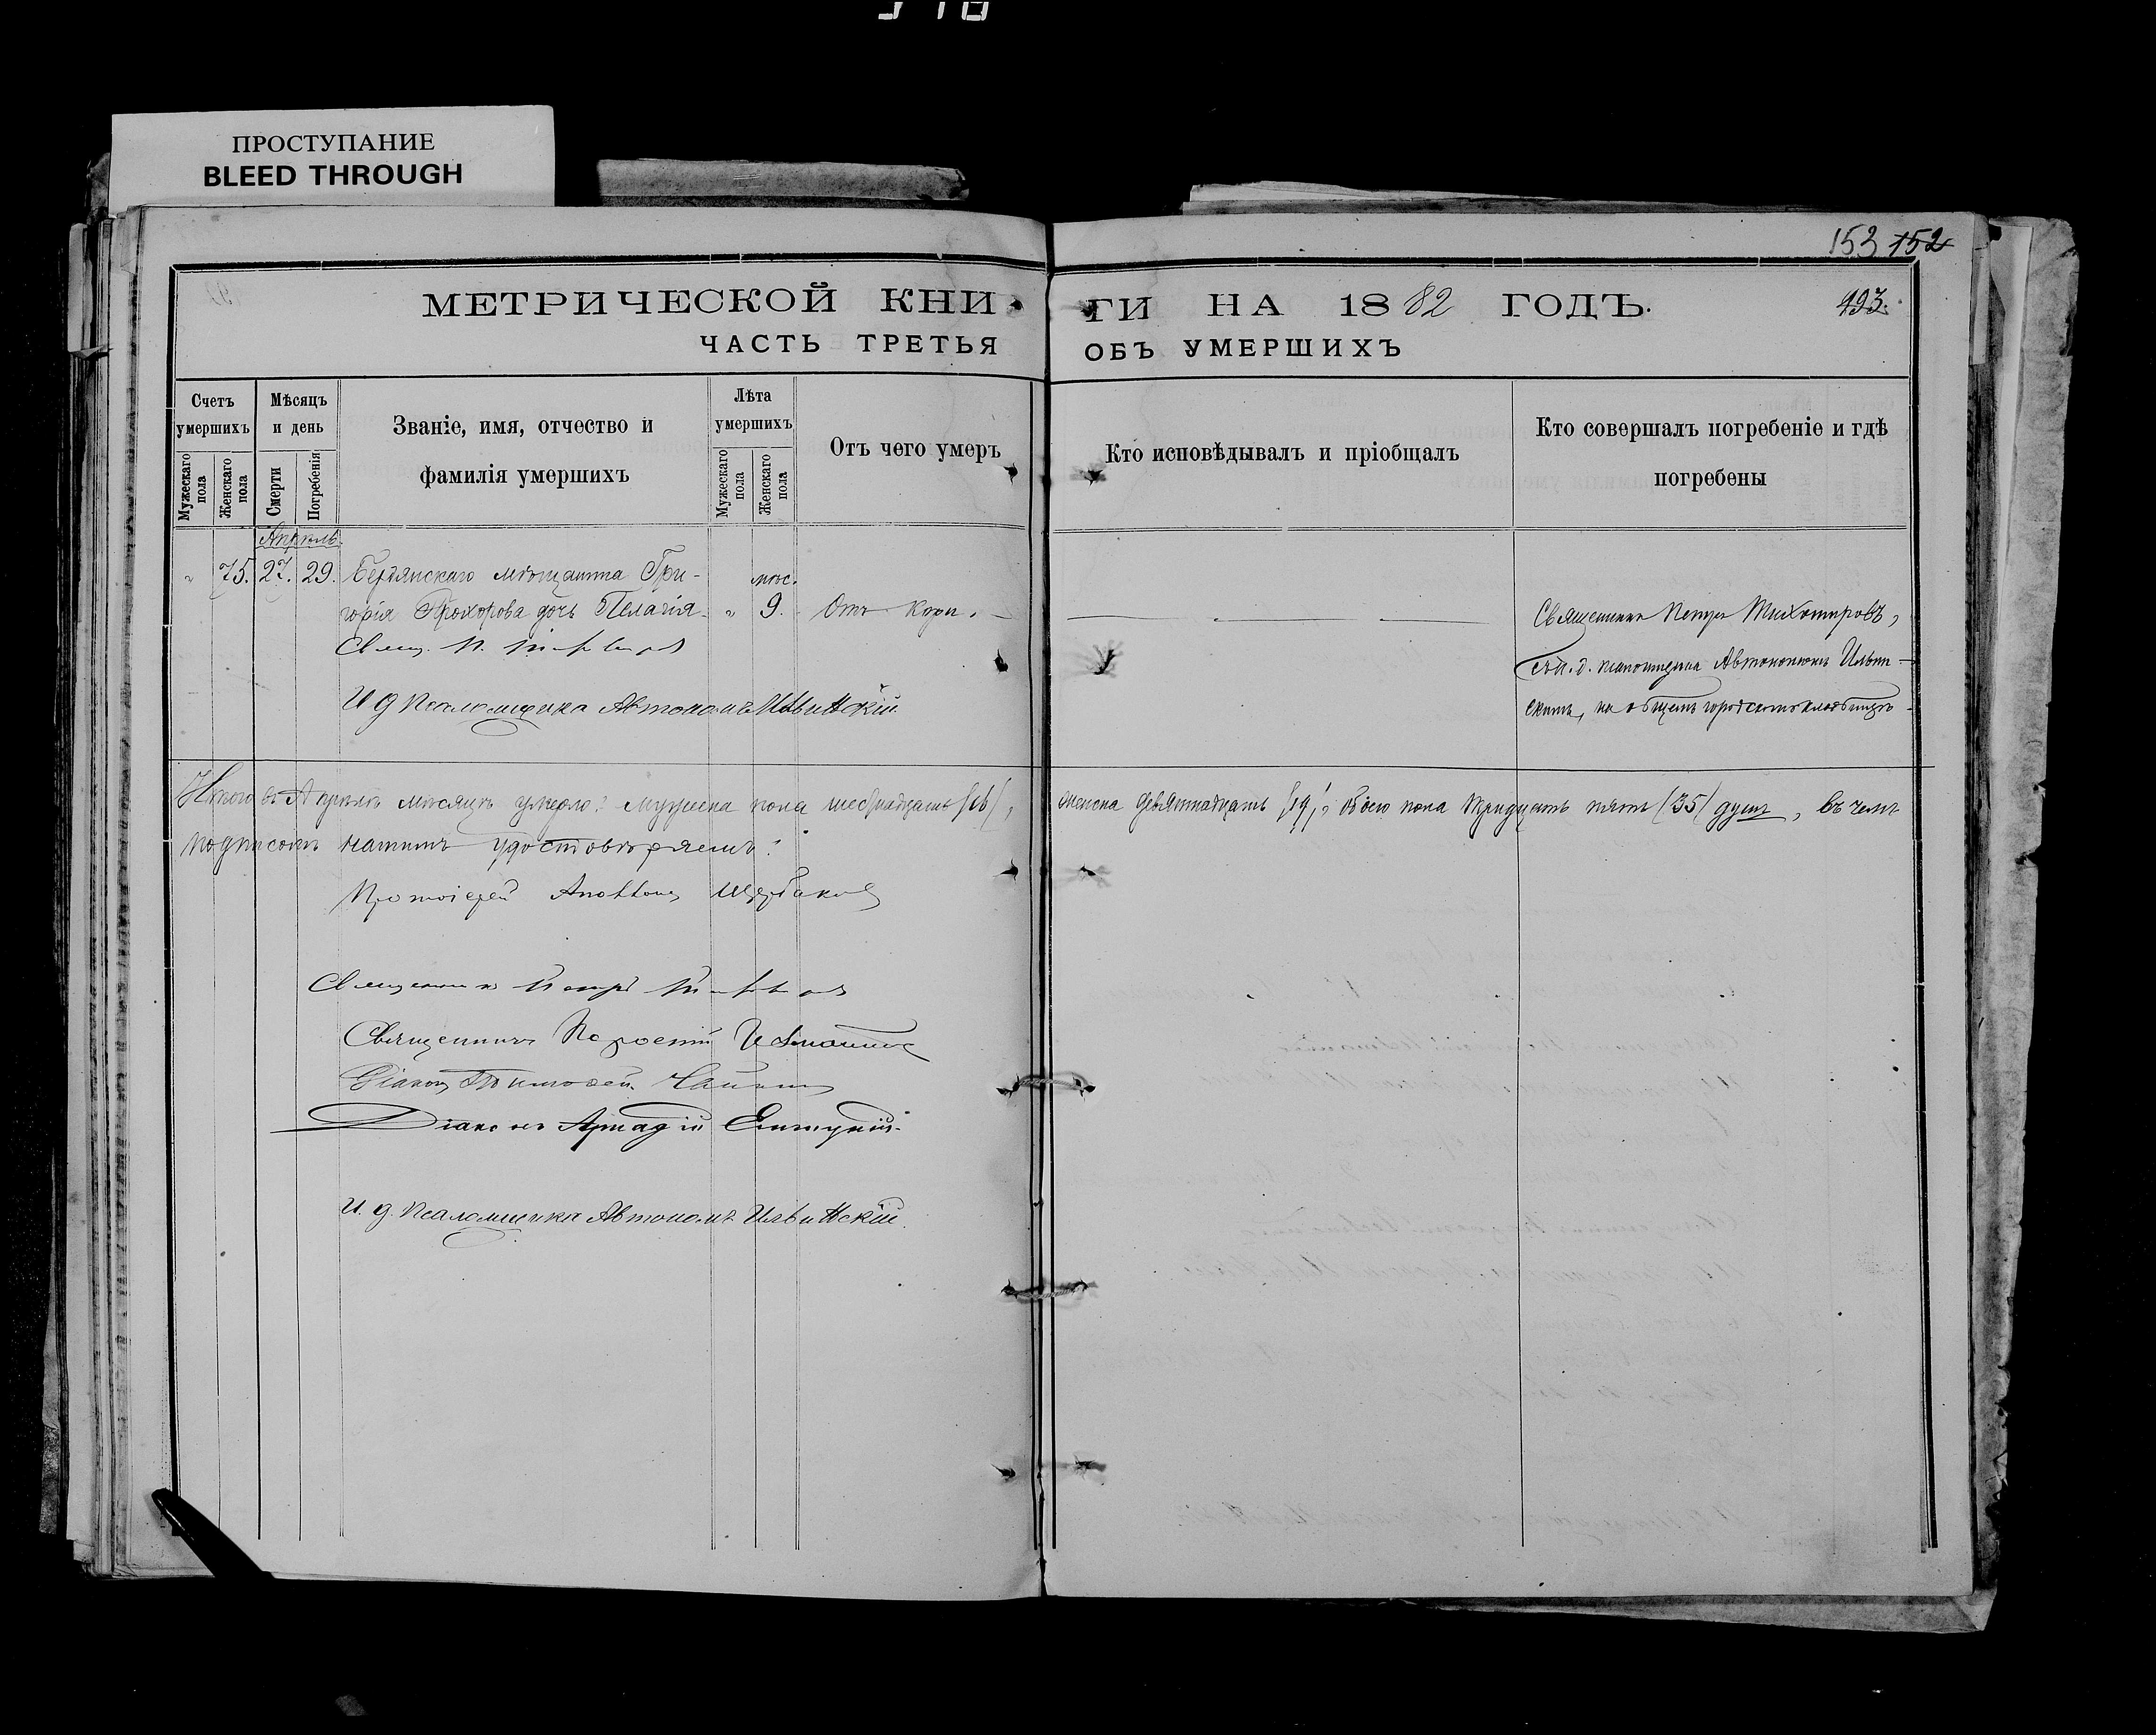 ПРОСТУПАНИЕ
BLEED THROUGH
153 152
МЕТРИЧЕСКОЙ КНИ
ГИ НА 1882 ГОДЪ.
493.
ЧАСТЬ ТРЕТЬЯ
ОБЪ УМЕРШИХЪ
Счетъ умершихъ
Мужескаго пола
Женскаго пола
Мѣсяцъ и день
Смерти
Погребенія
Званіе, имя, отчество и
фамилія умершихъ
Лѣта умершихъ
Мужескаго пола
Женскаго пола
Отъ чего умеръ
Кто исповѣдывалъ и пріобщалъ
Кто совершалъ погребеніе и гдѣ
погребены
Апрѣль.
" 75. 27. 29. Бердянскаго мѣщанина Гри-
горія Прохорова дочь Пелагія.
" мѣс. 9.
Отъ кори.
Свящ. П.
И д Псаломщика Автономъ Ильинскій
Священникъ Петръ Тихомировъ,
съ и. д. псаломщика Автономомъ Ильин-
скимъ, на общемъ городскомъ кладбищѣ
Итого въ Апрѣлѣ мѣсяцѣ умерло: мужеска пола шестнадцать (16), женска девятнадцать (19), обоего пола тридцать пять (35) душъ, въ чемъ
подписомъ нашимъ удостовѣряемъ:
Протоіерей Щербаковъ
Священникъ Петръ
Священникъ
Діаконъ Тимофей
Діаконъ Аркадій
И. д. Псаломщика Автономъ Ильинскій.